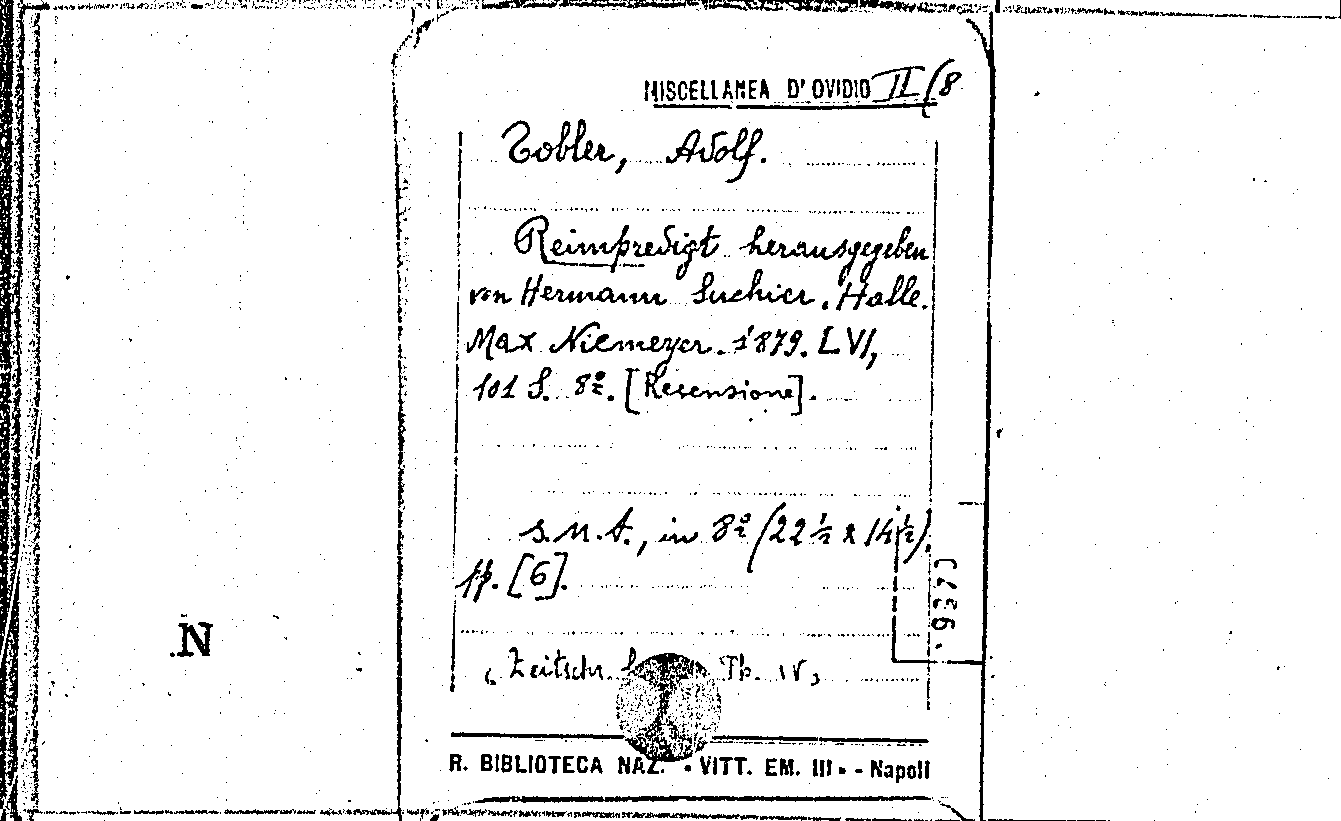 MISCELLANEA D'OVIDIO II/8
Tobler, Adolf.
Reimpredigt herausgegeben
von Hermann Suchier. Halle.
Max Niemeyer. 1879. LVI,
101 S. 8º. [Recensione].
s.n.t., in 8º (22½ x 14½).
pp. [6].
(Zeitschr. Ph. IV,
N
R. BIBLIOTECA NAZ. • VITT. EM. III • - Napoli